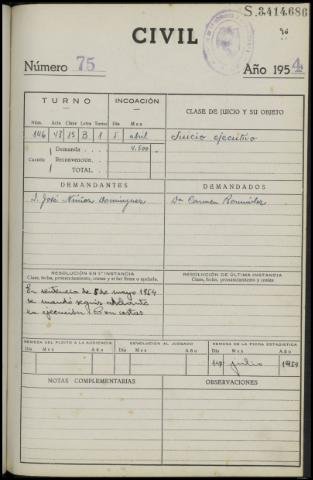 S.3.414.686
CIVIL
Número 75 Año 1954
TURNO INCOACIÓN CLASE DE JUICIO Y SU OBJETO
Núm. Acta Clase Letra Turno Día Mes
146 43 15 B 1 5 abril Juicio ejecutivo
Demanda 4.500
Cuantía Reconvención
TOTAL
DEMANDANTES DEMANDADOS
D. José Núñez Domínguez Dª Carmen
RESOLUCIÓN EN 1ª INSTANCIA RESOLUCIÓN DE ÚLTIMA INSTANCIA
Clase, fecha, pronunciamiento, costas y si fué firme o apelada. Clase, fecha, pronunciamiento y costas
En sentencia de 8 de mayo 1954
se mandó seguir adelante
la ejecución con costas
REMESA DEL PLEITO A LA AUDIENCIA DEVOLUCIÓN AL JUZGADO REMESA DE LA FICHA ESTADÍSTICA
Día Mes Año Día Mes Año Día Mes Año
julio 1954
NOTAS COMPLEMENTARIAS OBSERVACIONES